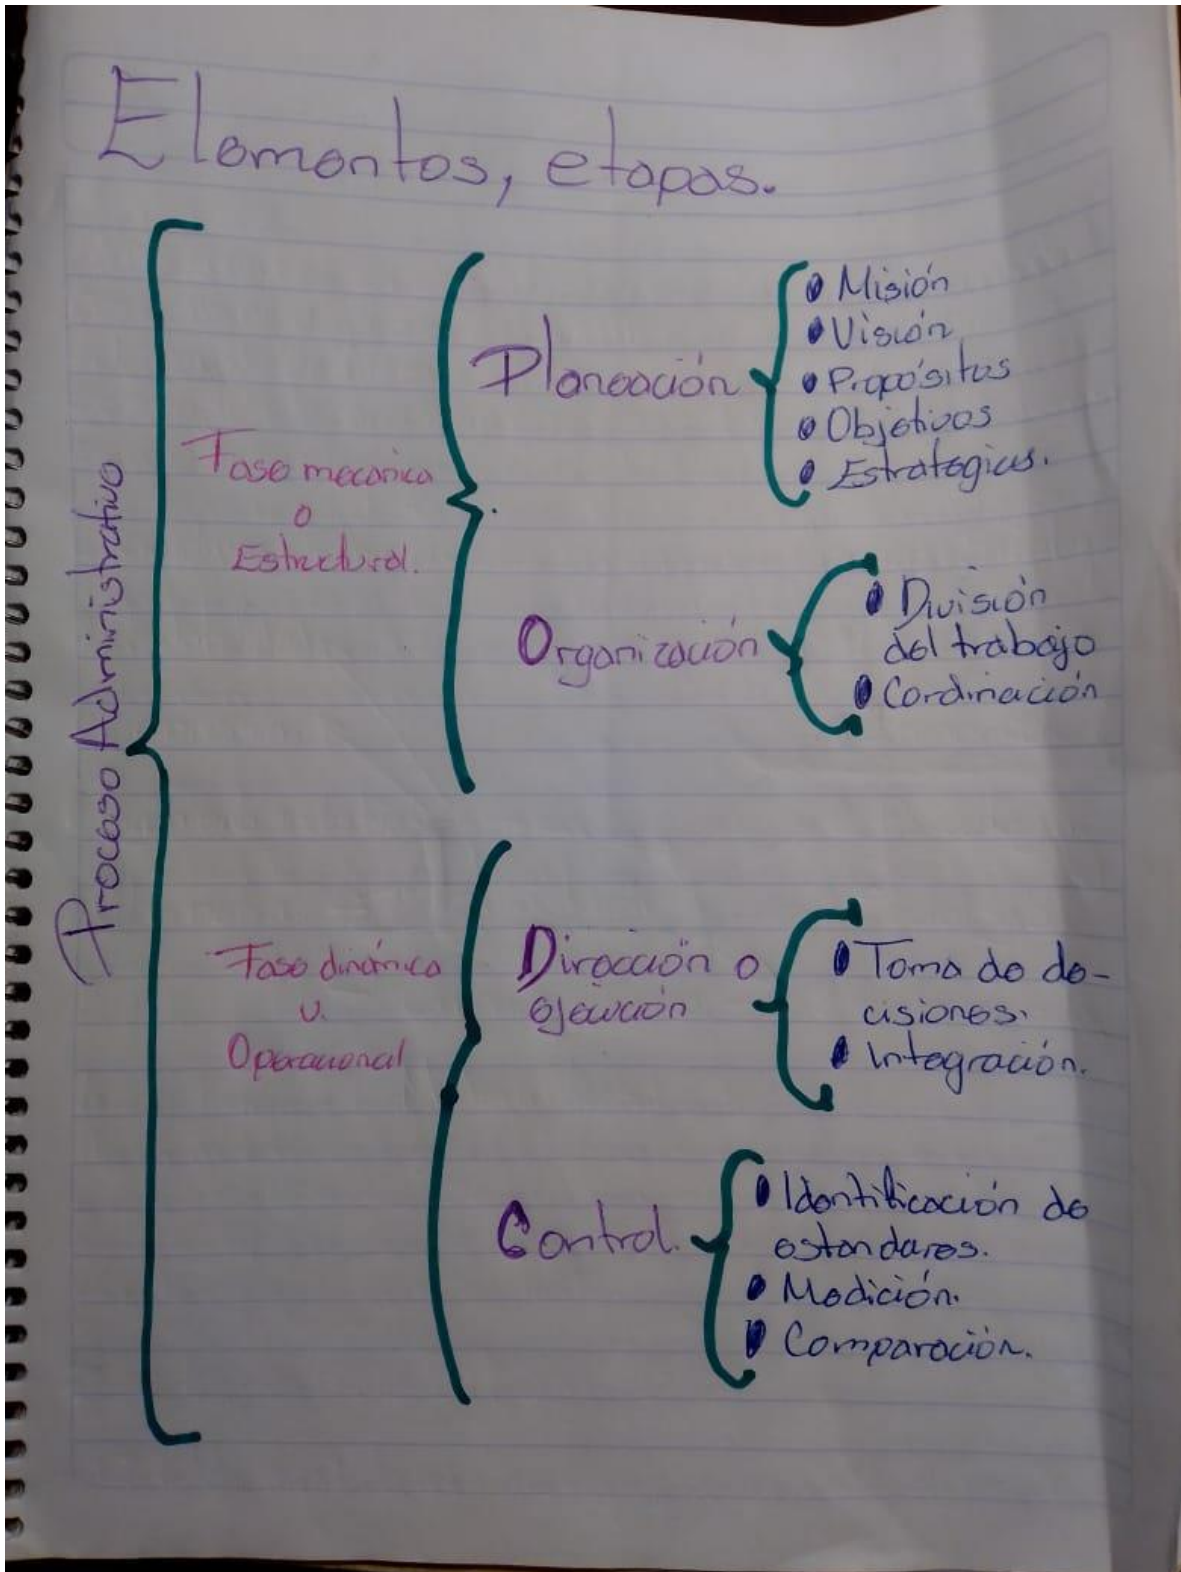 Elementos, etapas.
Proceso Administrativo
Fase mecánica
o
Estructural.
Planeación
Misión
Visión
Propósitos
Objetivos
Estrategias.
Organización
División
del trabajo
Cordinación
Fase dinámica
u.
Operacional
Dirección o
ejecución
Toma de de-
cisiones.
Integración.
Control.
Identificación de
estandares.
Medición.
Comparación.